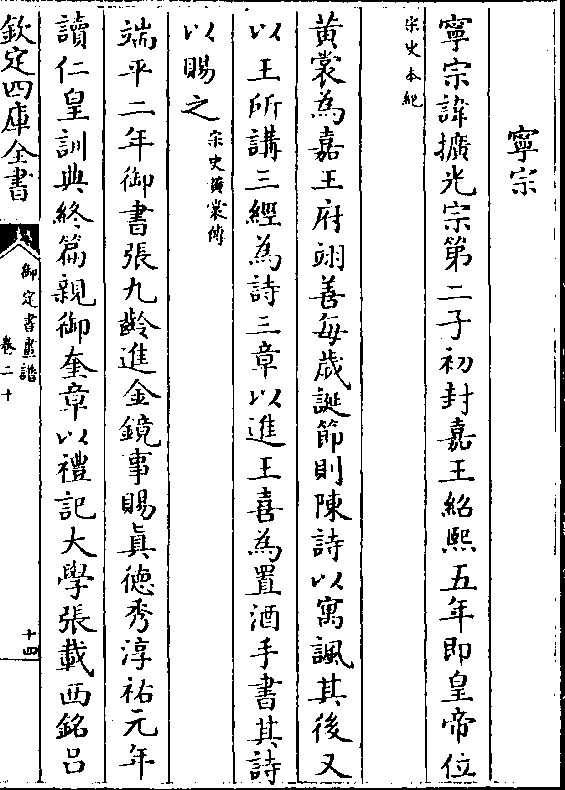 寧宗
寧宗諱擴光宗第二子初封嘉王紹熙五年即皇帝位
宋史本紀
黃裳為嘉王府翊善每歲誕節則陳詩以寓諷其後又
以王所講三經為詩三章以進王喜為置酒手書其詩
以賜之宋史黃裳傳
端平二年御書張九齡進金鏡事賜真德秀淳祐元年
讀仁皇訓典終篇親御奎章以禮記大學張載西銘呂
欽定四庫全書
御定書畫譜
卷二十
十四